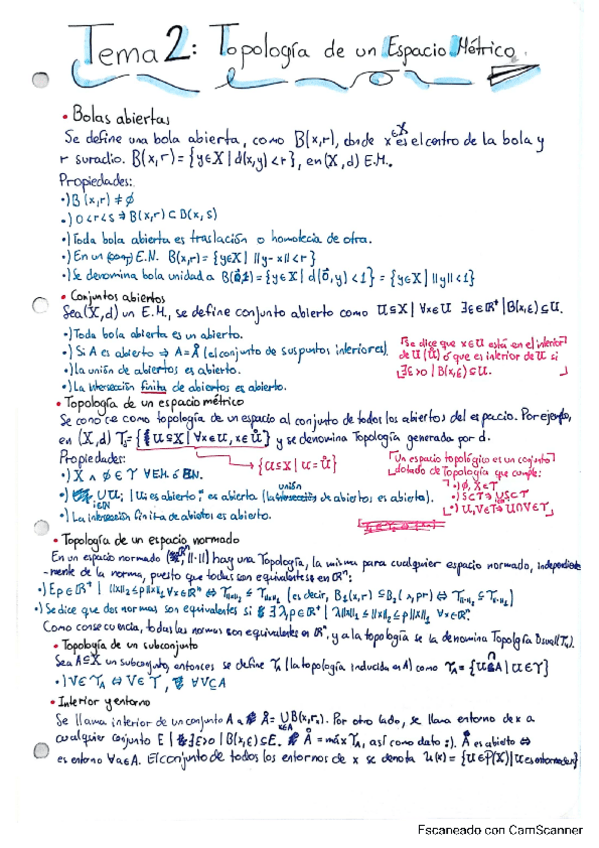 Tema 2: Topología de un Espacio Métrico.
• Bolas abiertas
Se define una bola abierta, como B(x,r), donde x∈X es el centro de la bola y
r su radio. B(x,r) = {y∈X | d(x,y) < r}, en (X,d) E.M..
Propiedades:
•) B(x,r) ≠ ∅
•) 0<r<s ⇒ B(x,r) ⊂ B(x,s)
•) Toda bola abierta es traslación o homotecia de otra.
•) En un E.N. B(x,r) = {y∈X | ||y-x|| < r}
•) Se denomina bola unidad a B(0,1) = {y∈X | d(0,y) < 1} = {y∈X | ||y|| < 1}
• Conjuntos abiertos
Sea (X,d) un E.M., se define conjunto abierto como U⊆X | ∀x∈U ∃ε∈ℝ⁺ | B(x,ε) ⊆ U.
•) Toda bola abierta es un abierto.
•) Si A es abierto ⇒ A = Å (el conjunto de sus puntos interiores).
•) La unión de abiertos es abierto.
•) La intersección finita de abiertos es abierto.
Se dice que x∈U está en el interior
de U (Ů) ó que es interior de U si
∃ε>0 | B(x,ε) ⊆ U.
• Topología de un espacio métrico
Se conoce como topología de un espacio al conjunto de todos los abiertos del espacio. Por ejemplo,
en (X,d) T = {U⊆X | ∀x∈U, x∈Ů} y se denomina Topología generada por d.
Propiedades:
{U⊆X | U = Ů}
•) X ∧ ∅ ∈ T ∀E.M. ó E.N.
•) ∪Ui | Ui es abierto es abierta (la unión de abiertos es abierta).
i∈ℕ
•) La intersección finita de abiertos es abierto.
Un espacio topológico es un conjunto
dotado de Topología que cumple:
•) ∅, X∈T
•) S⊂T ⇒ ∪S⊂T
•) U,V∈T ⇒ U∩V∈T
• Topología de un espacio normado
En un espacio normado (ℝⁿ, ||·||) hay una Topología, la misma para cualquier espacio normado, independiente
-mente de la norma, puesto que todas son equivalentes en ℝⁿ:
•) Se dice que dos normas son equivalentes si ∃ λ,ρ∈ℝ⁺ | λ||x||₁ ≤ ||x||₂ ≤ ρ||x||₁ ∀x∈ℝⁿ.
Como consecuencia, todas las normas son equivalentes en ℝⁿ, y a la topología se la denomina Topología Usual (Tᵤ).
• Topología de un subconjunto
Sea A⊆X un subconjunto, entonces se define T_A (la topología inducida en A) como T_A = {U∩A | U∈T}
• Interior y entorno
Se llama interior de un conjunto A a Å = ∪B(x,rₓ). Por otro lado, se llama entorno de x a
x∈A
cualquier conjunto E | ∃ε>0 | B(x,ε) ⊆ E. Å = máx T_A, así como dato :). Å es abierto ⇔
es entorno ∀a∈A. El conjunto de todos los entornos de x se denota U(x) = {U∈P(X) | U es entorno de x}
Escaneado con CamScanner